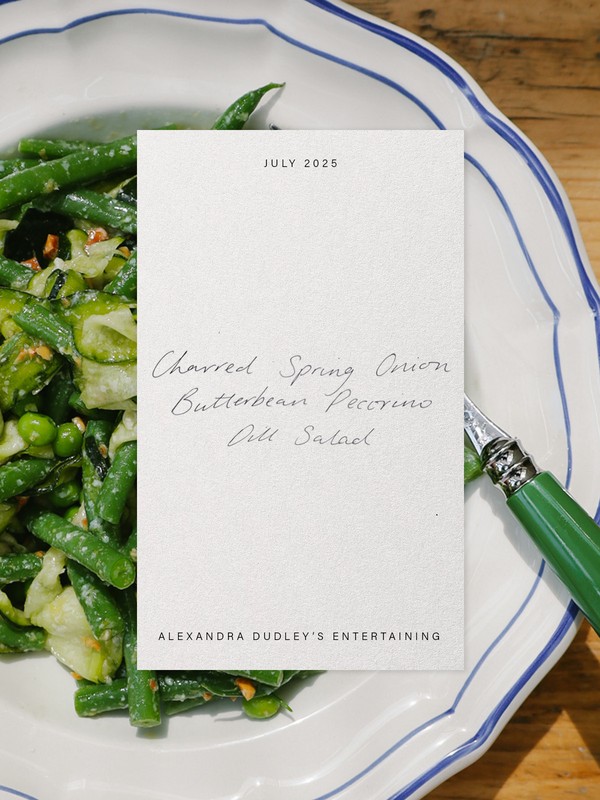 JULY 2025
Charred Spring Onion
Butterbean Pecorino
Dill Salad
ALEXANDRA DUDLEY'S ENTERTAINING